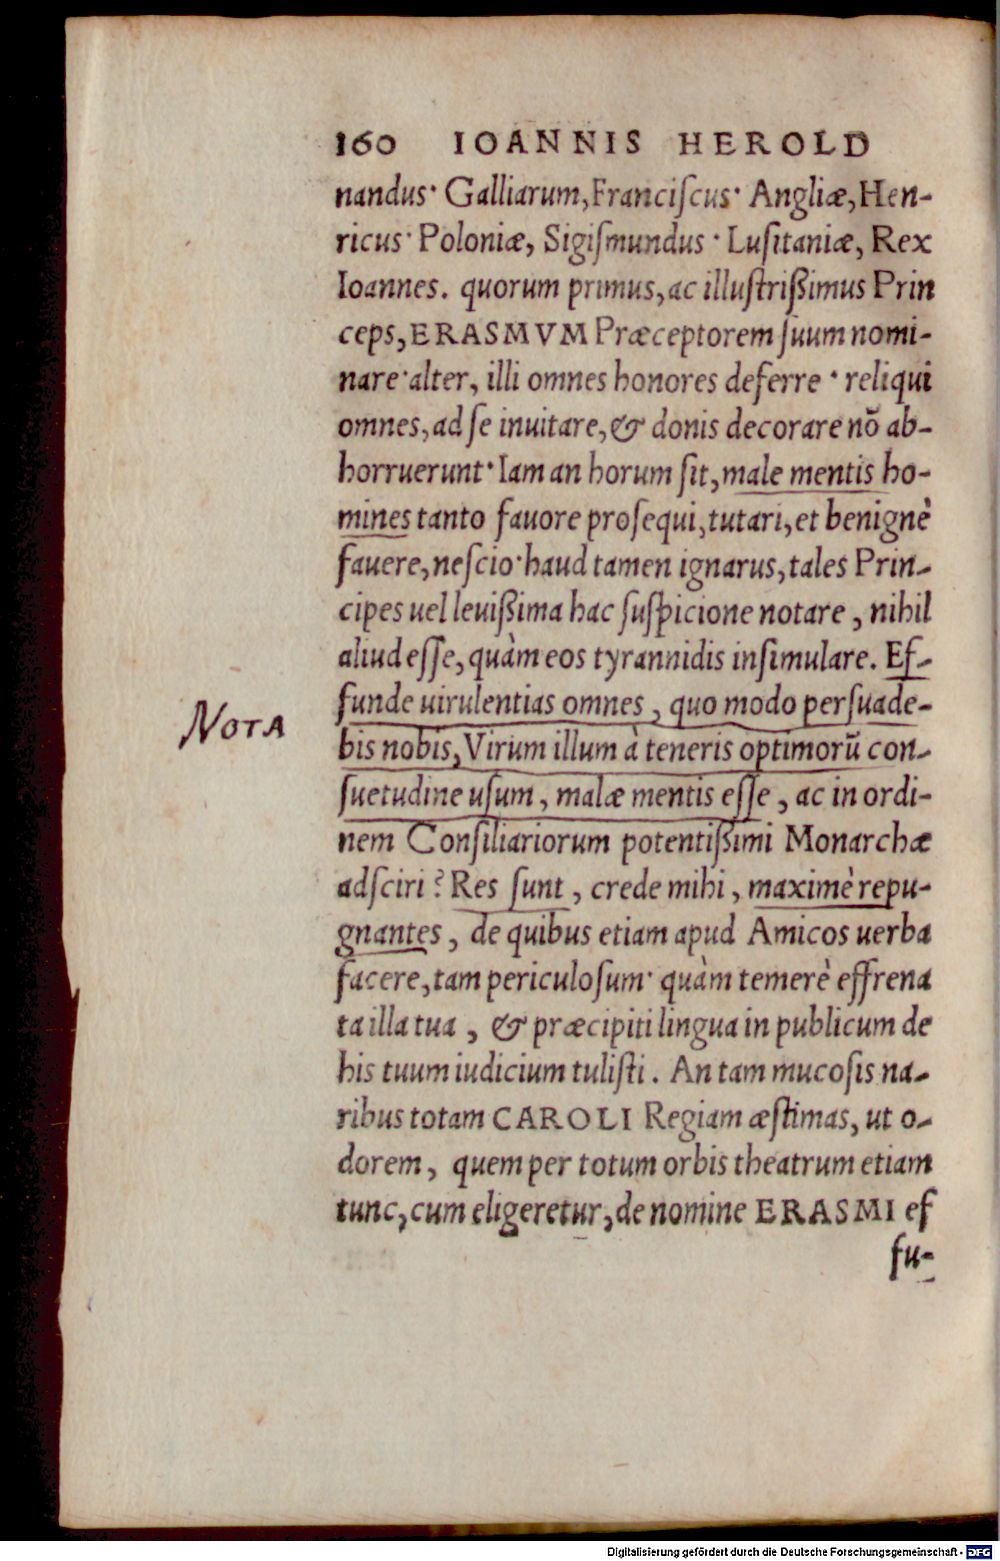 160 IOANNIS HEROLD
nandus· Galliarum, Franciſcus· Angliæ, Hen-
ricus· Poloniæ, Sigiſmundus· Luſitaniæ, Rex
Ioannes. quorum primus, ac illuſtrißimus Prin
ceps, ERASMVM Præceptorem ſuum nomi-
nare· alter, illi omnes honores deferre· reliqui
omnes, ad ſe inuitare, & donis decorare nõ ab-
horruerunt· Iam an horum ſit, male mentis ho-
mines tanto fauore proſequi, tutari, et benignè
fauere, neſcio· haud tamen ignarus, tales Prin-
cipes uel leuißima hac ſuſpicione notare, nihil
aliud eſſe, quàm eos tyrannidis inſimulare. Ef-
funde uirulentias omnes, quo modo perſuade-
NOTA
bis nobis, Virum illum à teneris optimorũ con-
ſuetudine uſum, malæ mentis eſſe, ac in ordi-
nem Conſiliariorum potentißimi Monarchæ
adſciri? Res ſunt, crede mihi, maximè repu-
gnantes, de quibus etiam apud Amicos uerba
facere, tam periculoſum· quàm temerè effrena
ta illa tua, & præcipiti lingua in publicum de
his tuum iudicium tuliſti. An tam mucoſis na-
ribus totam CAROLI Regiam æſtimas, ut o-
dorem, quem per totum orbis theatrum etiam
tunc, cum eligeretur, de nomine ERASMI ef
fu-
Digitalisierung gefördert durch die Deutsche Forschungsgemeinschaft - DFG